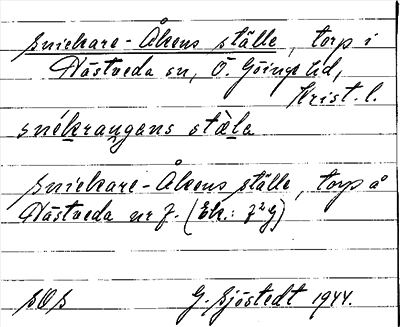 Snickare-Åkens ställe, torp i
Hästveda sn, Ö. Göinge hd,
Krist. l.
snékrauŋans stɛ̀lə
Snickare-Åkens ställe, torp å
Hästveda nr 7. (Ek.: 7²G)
SOS G. Sjöstedt 1944.